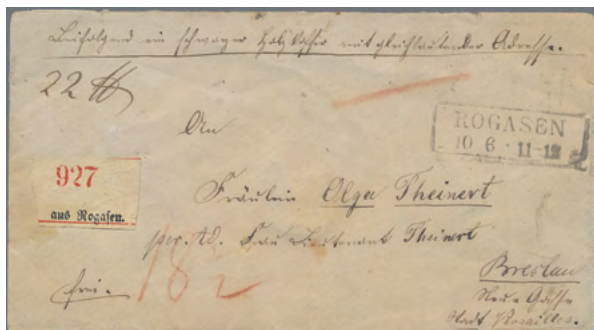 Beifolgend ein schwarzer Holzkoffer mit gleichlautender Adresse.
22 ℔
An
ROGASEN
10 6 · 11-12
927
aus Rogasen.
Fräulein Olga Theinert
per. Ad. Frau Lieutenant Theinert
18
frei.
Breslau
Neue Gasse
Stadt